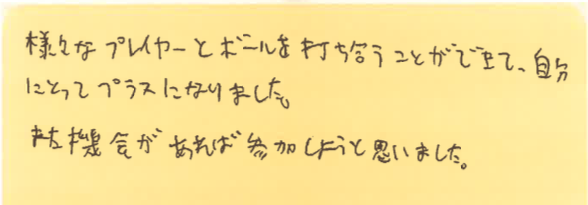 様々なプレイヤーとボールを打ち合うことができて、自分
にとってプラスになりました。
また機会があれば参加しようと思いました。